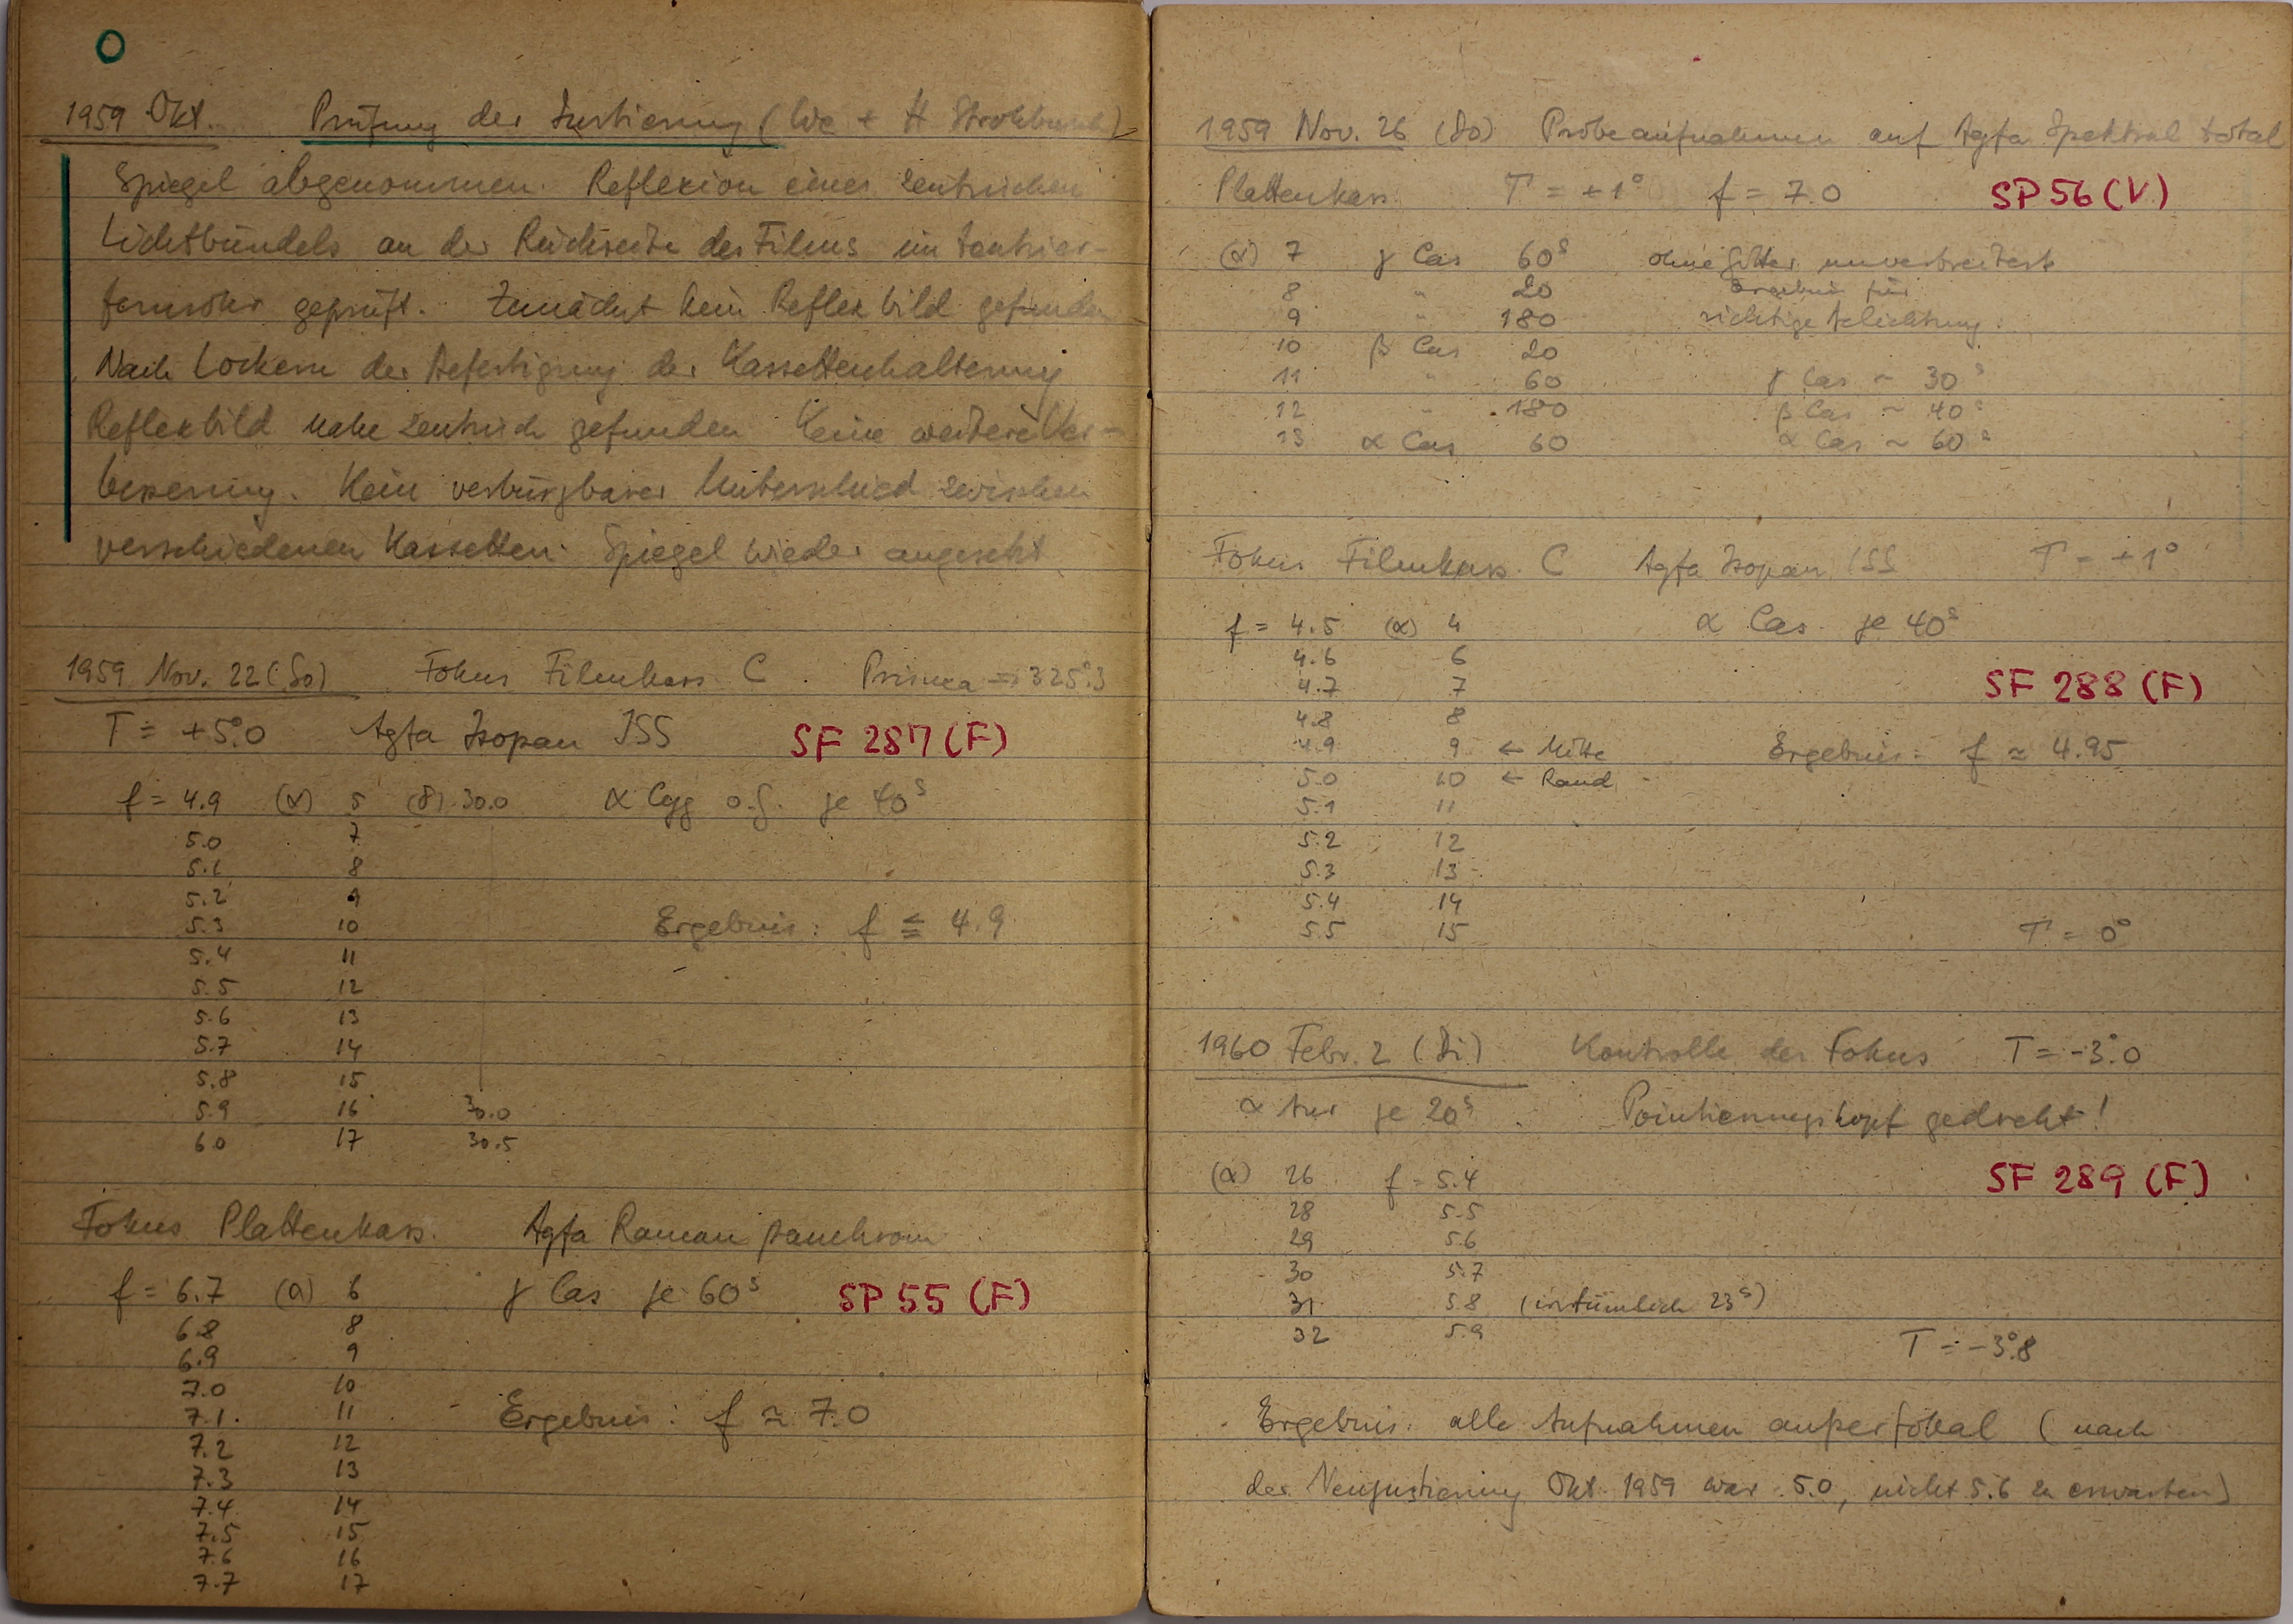 O
1959 Okt. Prüfung der Justierung (We + H Strohbusch)
Spiegel abgenommen. Reflexion eines zentrischen
Lichtbündels an der Rückseite des Films im Zentrier-
fernrohr geprüft. Zunächst kein Reflexbild gefunden
Nach Lockern der Befestigung der Kassettenhalterung
Reflexbild nahe zentrisch gefunden Keine weitere Ver-
besserung. Kein verbürgbarer Unterschied zwischen
verschiedenen Kassetten. Spiegel wieder angesetzt
1959 Nov. 22 (So) Fokus Filmkass. C. Prisma → 325°.3
T = +5°.0 Agfa Isopan ISS SF 287 (F)
f = 4.9 (α) 5 (δ) 30.0 α Cyg o.G. je 40s
5.0 7
5.1 8
5.2 9
5.3 10 Ergebnis: f ≦ 4.9
5.4 11
5.5 12
5.6 13
5.7 14
5.8 15
5.9 16 30.0
6.0 17 30.5
Fokus Plattenkass. Agfa Raman panchrom
f = 6.7 (α) 6 γ Cas je 60s SP 55 (F)
6.8 8
6.9 9
7.0 10
7.1 11 Ergebnis: f ≃ 7.0
7.2 12
7.3 13
7.4 14
7.5 15
7.6 16
7.7 17
1959 Nov. 26 (Do) Probeaufnahmen auf Agfa Spektral total
Plattenkass. T = +1° f = 7.0 SP 56 (V)
(α) 7 γ Cas 60s ohne Gitter unverbreitert
8 " 20 Ergebnis für
9 " 180 richtige Belichtung:
10 β Cas 20
11 " 60 γ Cas ~ 30s
12 " 180 β Cas ~ 40s
13 α Cas 60 α Cas ~ 60s
Fokus Filmkass. C Agfa Isopan ISS T = +1°
f = 4.5 (α) 4 α Cas je 40s
4.6 6
4.7 7 SF 288 (F)
4.8 8
4.9 9 ← Mitte Ergebnis: f ≃ 4.95
5.0 10 ← Rand
5.1 11
5.2 12
5.3 13
5.4 14
5.5 15 T = 0°
1960 Febr. 2 (Di) Kontrolle des Fokus T = -3°.0
α Aur je 20s Pointierungskopf gedreht!
(α) 26 f = 5.4 SF 289 (F)
28 5.5
29 5.6
30 5.7
31 5.8 (irrtümlich 23s)
32 5.9 T = -3°.8
Ergebnis: alle Aufnahmen außerfokal (nach
der Neujustierung Okt. 1959 war 5.0, nicht 5.6 zu erwarten)